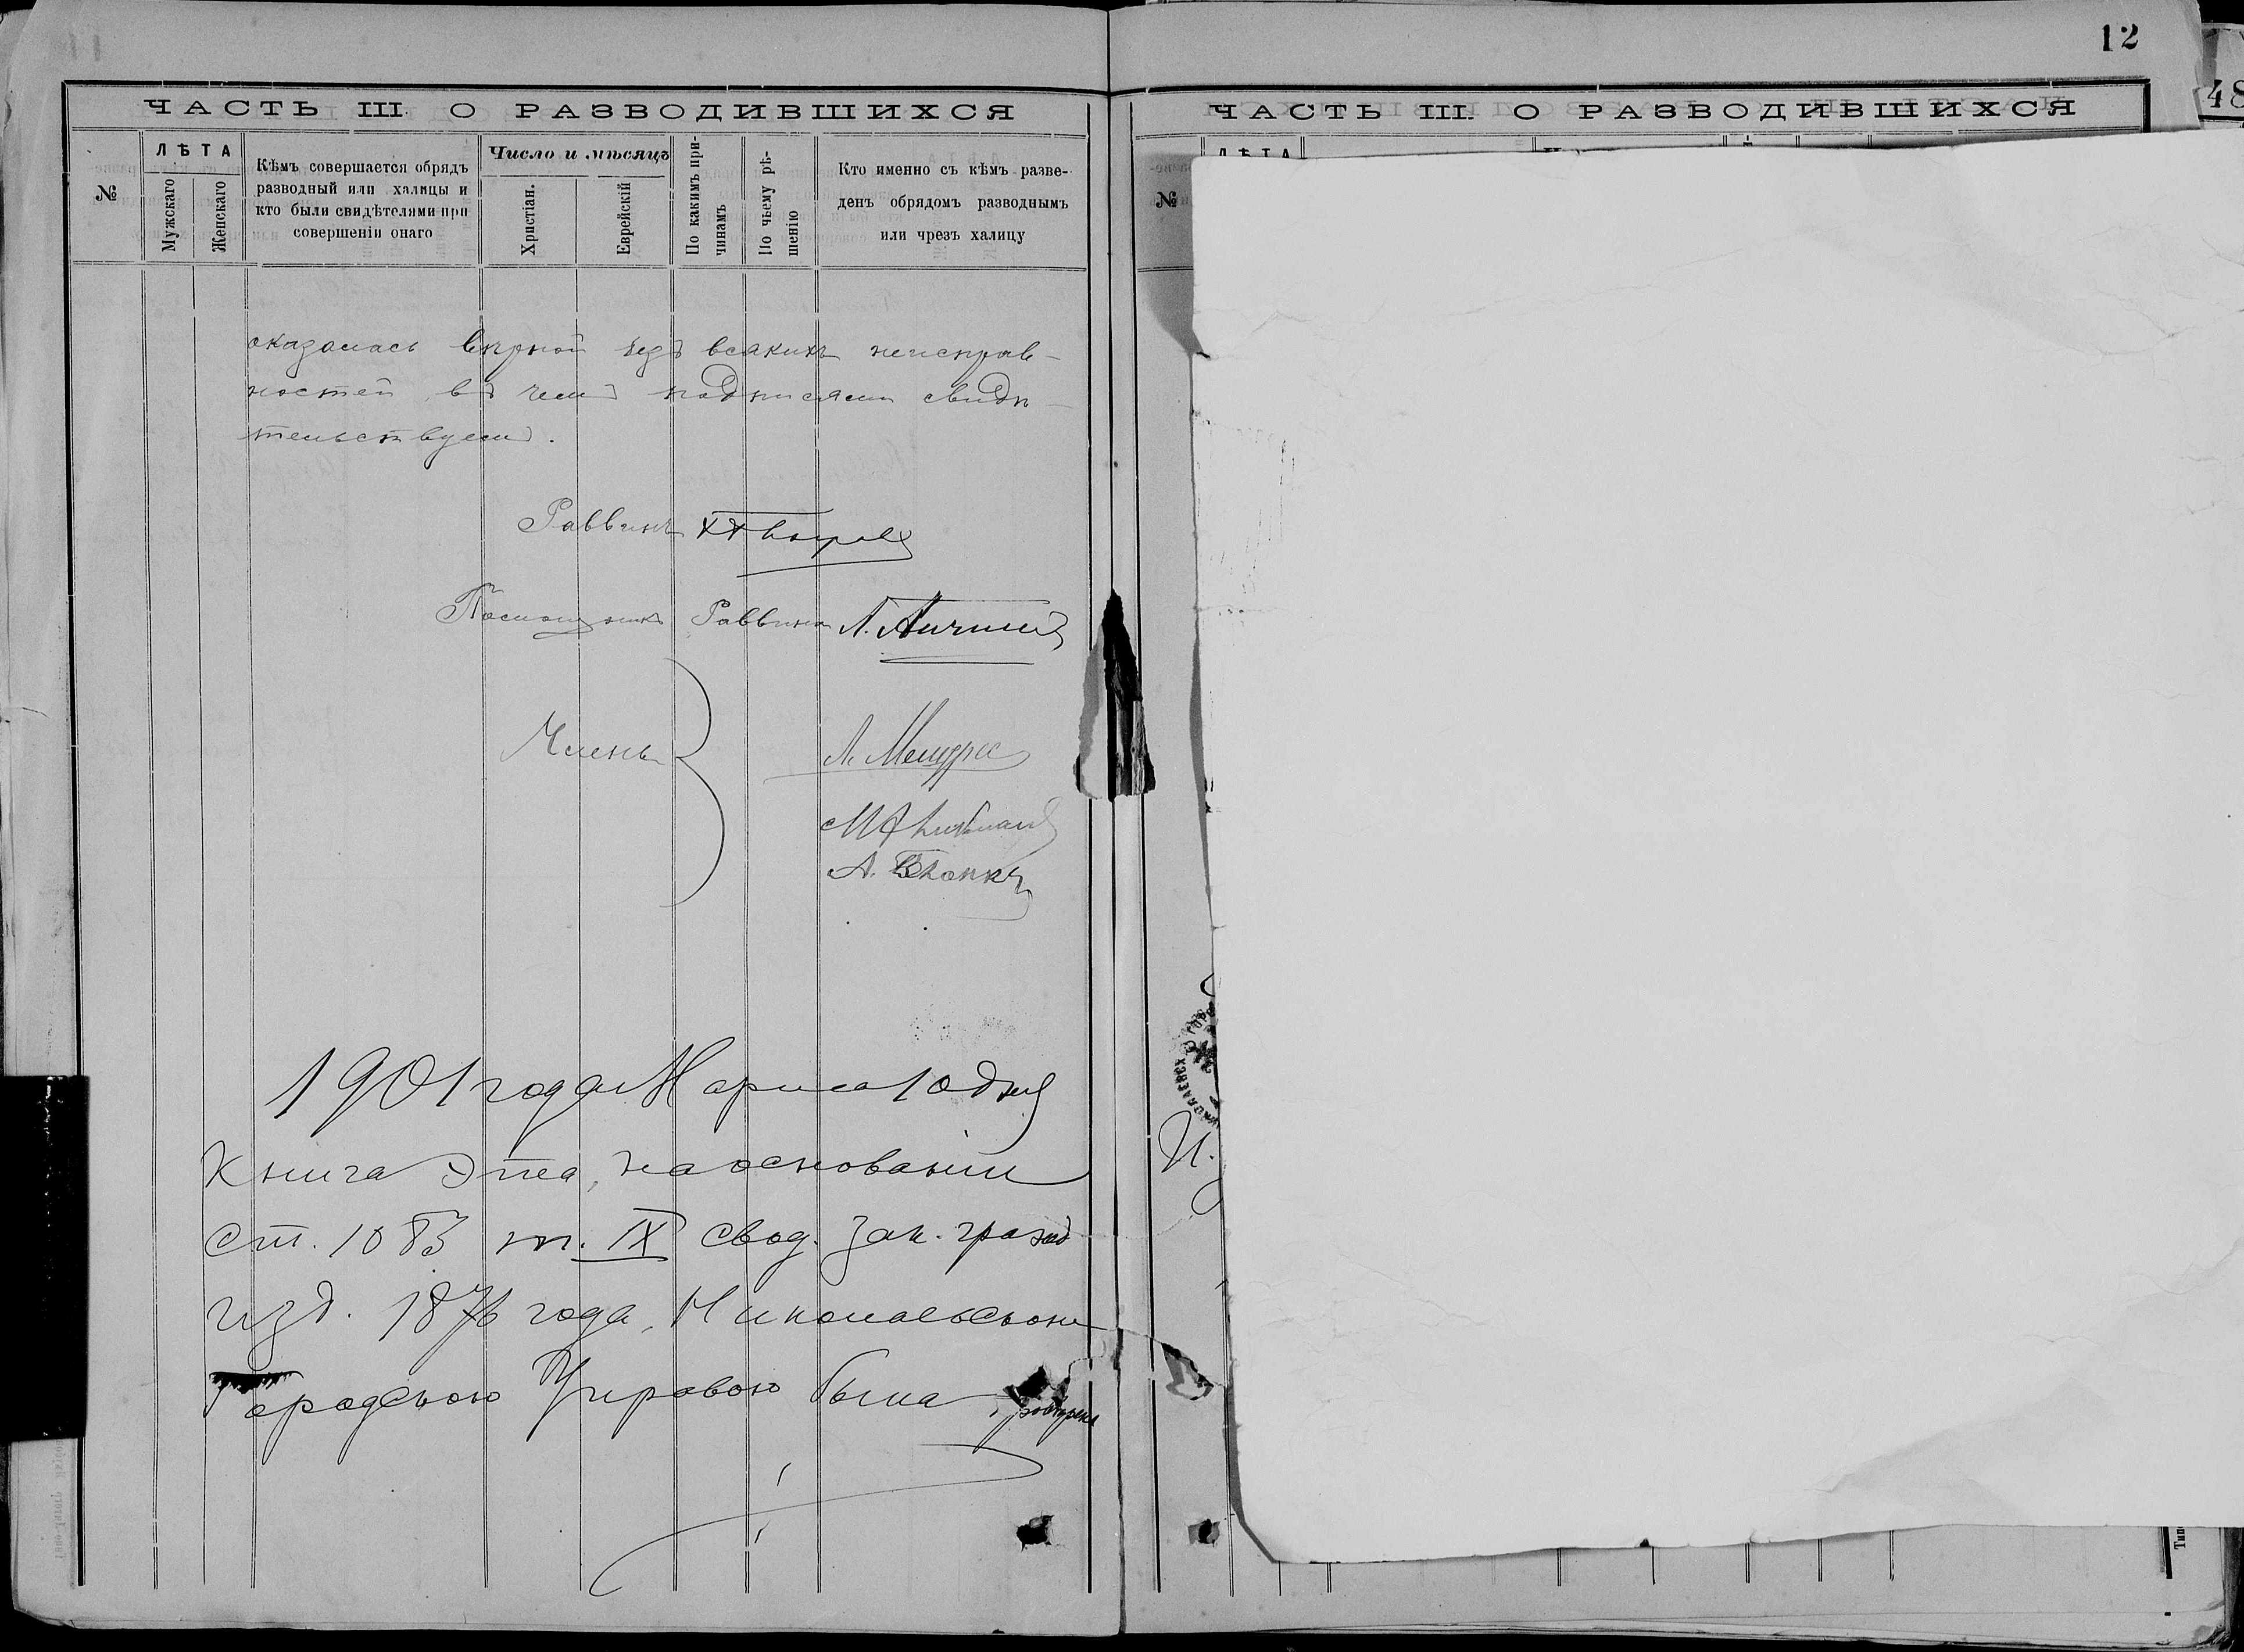 12
48
ЧАСТЬ III. О РАЗВОДИВШИХСЯ
№
ЛѢТА
Мужскаго
Женскаго
Кѣмъ совершается обрядъ
разводный или халицы и
кто были свидѣтелями при
совершеніи онаго
Число и мѣсяцъ
Христіан.
Еврейскій
По какимъ при-
чинамъ
По чьему рѣ-
шенію
Кто именно съ кѣмъ разве-
денъ обрядомъ разводнымъ
или чрезъ халицу
оказалась вѣрной безъ всякихъ неисправ-
ностей въ чемъ подписями свидѣ-
тельствуемъ.
Раввинъ
Помощникъ Раввина Л.
Члены
Л.
М
А.
1901 года Марта 10 дня
Книга эта, на основаніи
ст. 1083 т. IX свод. зак. гражд
изд. 1876 года, Николаевскою
Городскою Управою была
ЧАСТЬ III. О РАЗВОДИВШИХСЯ
ЛѢТА
№
И.